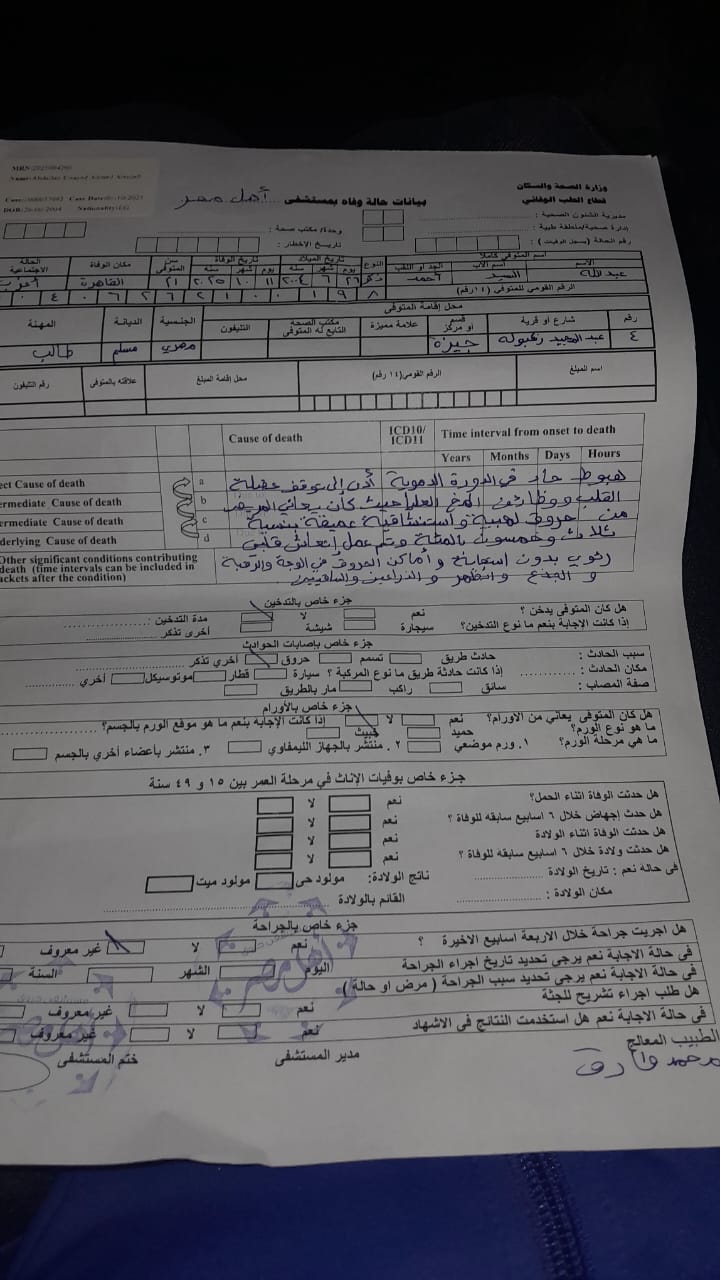 MRN:
Name: Abdullah Elsayed Ahmed
Case: Case Date: /10/2025
DOB: 26/06/2004 Nationality: EG
وزارة الصحة والسكان
قطاع الطب الوقائي
بيانات حالة وفاه بمستشفى أهل مصر
مديرية الشئون الصحية :
إدارة صحية/منطقة طبية : وحدة/ مكتب صحة :
رقم الحالة (بسجل الوفيات) : تاريخ الإخطار :
اسم المتوفي كاملا النوع تاريخ الميلاد تاريخ الوفاة سن المتوفى مكان الوفاة الحالة الاجتماعية
الاسم اسم الاب الجد او اللقب يوم شهر سنة يوم شهر سنة
عبدالله السيد أحمد ذكر ٢٦ ٦ ٢٠٠٤ ١١ ١٠ ٢٠٢٥ ٢١ القاهرة أعزب
الرقم القومي للمتوفى (١٤ رقم)
محل إقامة المتوفى
رقم شارع او قرية قسم او مركز علامة مميزة مكتب الصحة التابع له المتوفى التليفون الجنسية الديانة المهنة
٤ عبد المجيد جيزة مصري مسلم طالب
اسم المبلغ الرقم القومى (١٤ رقم) محل إقامة المبلغ علاقته بالمتوفى رقم التليفون
Cause of death ICD10/ ICD11 Time interval from onset to death
Years Months Days Hours
ect Cause of death a هبوط حاد في الدورة الدموية أدى إلى توقف عضلة
ermediate Cause of death b القلب ووظائف المخ العليا حيث كان يعاني المريض
ermediate Cause of death c من حروق لهبية واستنشاقية عميقة بنسبة
derlying Cause of death d ثلاث وخمسون بالمئة وتم عمل إنعاش قلبي
Other significant conditions contributing رئوي بدون استجابة وأماكن الحروق في الوجة والرقبة
death (time intervals can be included in و الجذع والظهر و الذراعين والساقيين
ackets after the condition)
جزء خاص بالتدخين
هل كان المتوفى يدخن ؟ نعم لا مدة التدخين :
إذا كانت الإجابة بنعم ما نوع التدخين؟ سيجارة شيشة أخرى تذكر
جزء خاص بإصابات الحوادث
سبب الحادث : حادث طريق تسمم حروق أخري تذكر
مكان الحادث : إذا كانت حادثة طريق ما نوع المركبة ؟ سيارة قطار موتوسيكل أخري
صفة المصاب : سائق راكب مار بالطريق
جزء خاص بالأورام
هل كان المتوفى يعاني من الاورام؟ نعم لا إذا كانت الإجابة بنعم ما هو موقع الورم بالجسم؟
ما هو نوع الورم؟ حميد خبيث
ما هي مرحلة الورم؟ ١. ورم موضعي ٢. منتشر بالجهاز الليمفاوي ٣. منتشر بأعضاء أخري بالجسم
جزء خاص بوفيات الإناث في مرحلة العمر بين ١٥ و ٤٩ سنة
هل حدثت الوفاة اثناء الحمل؟ نعم لا
هل حدث إجهاض خلال ٦ اسابيع سابقه للوفاة ؟ نعم لا
هل حدثت الوفاة اثناء الولادة نعم لا
هل حدثت ولادة خلال ٦ اسابيع سابقه للوفاة ؟ نعم لا
فى حاله نعم : تاريخ الولادة ناتج الولادة: مولود حى مولود ميت
مكان الولادة : القائم بالولادة
جزء خاص بالجراحة
هل اجريت جراحة خلال الاربعة اسابيع الاخيرة ؟ نعم لا غير معروف
فى حالة الاجابة نعم يرجي تحديد تاريخ اجراء الجراحة اليوم الشهر السنة
فى حالة الاجابة نعم يرجي تحديد سبب الجراحة ( مرض او حالة )
هل طلب اجراء تشريح للجثة نعم لا غير معروف
فى حالة الاجابة نعم هل استخدمت النتائج فى الاشهاد نعم لا غير معروف
الطبيب المعالج مدير المستشفى ختم المستشفى
أهل مصر